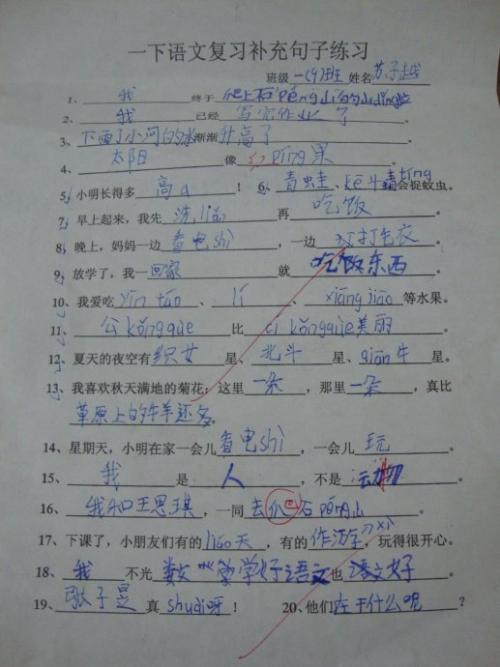 一下语文复习补充句子练习
班级 一(9)班 姓名
1、我 终于 爬上石péng山的山dǐng啦
2、我 已经 写完作业了 。
3、下雨了小河的水渐渐升高了 。
4、太阳 像 红píng果 。
5、小明长得多高a ！ 6、青蛙、kē斗 会捉蚊虫。
7、早上起来，我先 洗liǎn 再 吃饭 。
8、晚上，妈妈一边 看电shì ，一边 打毛衣 。
9、放学了，我 回家 就 吃饭东西 。
10、我爱吃 yīn táo 、lí 、xiāng jiāo 等水果。
11、公kǒngquè 比 kǒngquè美丽 。
12、夏天的夜空有 织女 星、北斗 星、qiān牛 星。
13、我喜欢秋天满地的菊花；这里 一朵 ，那里 一朵 ，真比
草原上的牛羊还多。
14、星期天，小明在家一会儿 看电shì ，一会儿 玩 。
15、我 是 人 ，不是 动物 。
16、我和王思琪 ，一同 去 石péng山 。
17、下课了，小朋友们有的 liáo天 ，有的 作 ，玩得很开心。
18、我 不光 数 学好语文 也 语文好 。
19、张子昱 真 shuài呀 ！ 20、他们 在干什么呢 ？